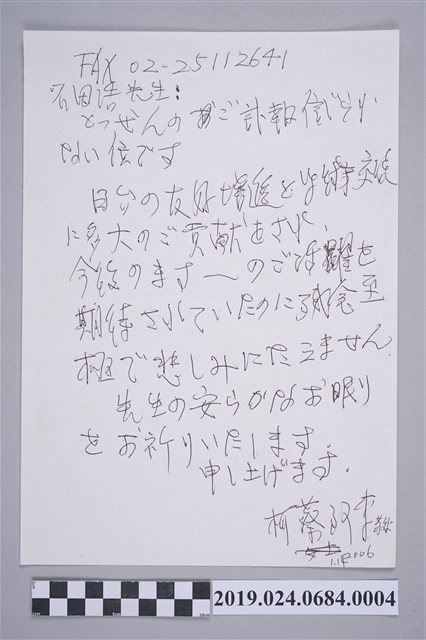 FAX 02-25112641
石田浩先生:
とつぜんのご訃報信じられ
ない位です
日台の友好増進と学術交流
に多大のご貢献をされ、
今後のます〱のご活躍を
期待されていたのに残念至
極で悲しみにたえません.
先生の安らかなお眠り
をお祈りいたします.
申し上げます.
柯蔡阿李
2006
2019.024.0684.0004